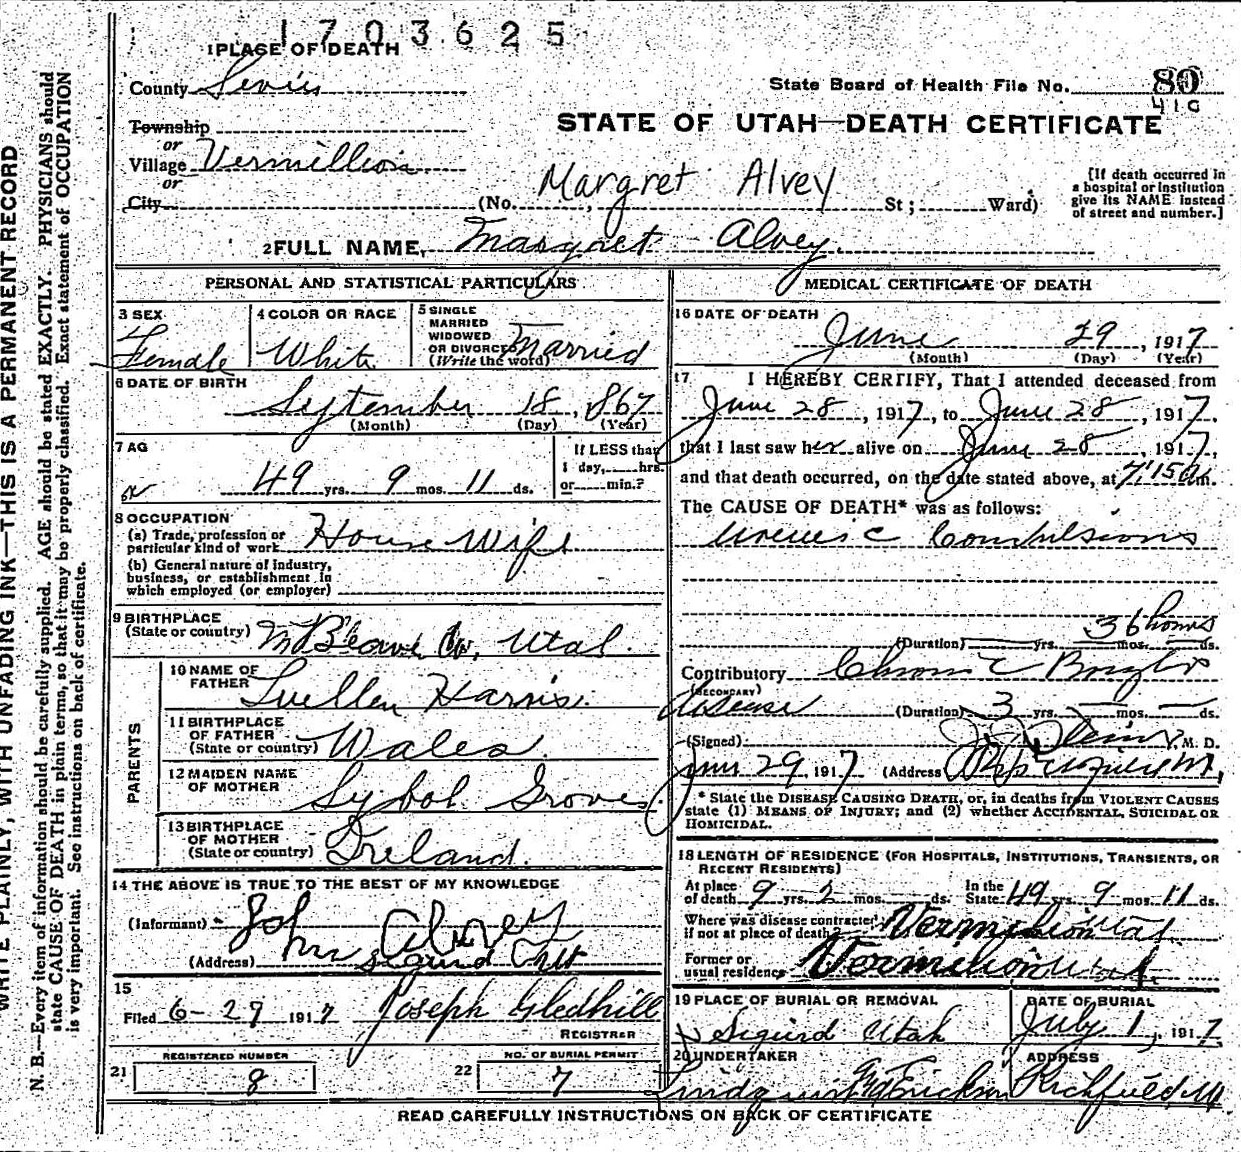 1703625
1 PLACE OF DEATH
County Sevier
State Board of Health File No. 80
41C
Township
STATE OF UTAH—DEATH CERTIFICATE
or
Village Vermillion
or
City
(No. Margret Alvey St; Ward)
[If death occurred in
a hospital or institution
give its NAME instead
of street and number.]
2 FULL NAME, Margret Alvey.
PERSONAL AND STATISTICAL PARTICULARS
3 SEX
Female
4 COLOR OR RACE
White
5 SINGLE
MARRIED
WIDOWED
OR DIVORCED
(Write the word)
Married
6 DATE OF BIRTH
September 18, 1867
(Month) (Day) (Year)
7 AG
49 yrs. 9 mos. 11 ds.
If LESS than
1 day, hrs.
or min.?
8 OCCUPATION
(a) Trade, profession or
particular kind of work House Wife
(b) General nature of industry,
business, or establishment in
which employed (or employer)
9 BIRTHPLACE
(State or country) Utah.
PARENTS
10 NAME OF
FATHER Luellen Harris.
11 BIRTHPLACE
OF FATHER
(State or country) Wales.
12 MAIDEN NAME
OF MOTHER Sybol Groves
13 BIRTHPLACE
OF MOTHER
(State or country) Ireland.
14 THE ABOVE IS TRUE TO THE BEST OF MY KNOWLEDGE
(Informant) John Alvey
(Address) Sigurd Utt
15
Filed 6-29 1917 Joseph Gledhill
REGISTRAR
REGISTERED NUMBER
21 8
NO. OF BURIAL PERMIT
22 7
MEDICAL CERTIFICATE OF DEATH
16 DATE OF DEATH
June 29, 1917
(Month) (Day) (Year)
17 I HEREBY CERTIFY, That I attended deceased from
June 28, 1917, to June 28, 1917,
that I last saw her alive on June 28, 1917,
and that death occurred, on the date stated above, at 7:15 a m.
The CAUSE OF DEATH* was as follows:
Uremic Convulsions
36 hours
(Duration) yrs. mos. ds.
Contributory Chronic Brights
(SECONDARY)
disease (Duration) 3 yrs. mos. ds.
(Signed) M. D.
June 29, 1917 (Address)
* State the DISEASE CAUSING DEATH, or, in deaths from VIOLENT CAUSES
state (1) MEANS OF INJURY; and (2) whether ACCIDENTAL, SUICIDAL OR
HOMICIDAL.
18 LENGTH OF RESIDENCE (FOR HOSPITALS, INSTITUTIONS, TRANSIENTS, OR
RECENT RESIDENTS)
At place
of death 9 yrs. 2 mos. ds.
In the
State 49 yrs. 9 mos. 11 ds.
Where was disease contracted
if not at place of death? Vermilion Utah
Former or
usual residence Vermilion Utah
19 PLACE OF BURIAL OR REMOVAL
Sigurd Utah
DATE OF BURIAL
July 1, 1917
20 UNDERTAKER
Lindquist Erickson
ADDRESS
Richfield, Ut
READ CAREFULLY INSTRUCTIONS ON BACK OF CERTIFICATE
WRITE PLAINLY, WITH UNFADING INK—THIS IS A PERMANENT RECORD
N. B.—Every item of information should be carefully supplied. AGE should be stated EXACTLY. PHYSICIANS should
state CAUSE OF DEATH in plain terms, so that it may be properly classified. Exact statement of OCCUPATION
is very important. See instructions on back of certificate.